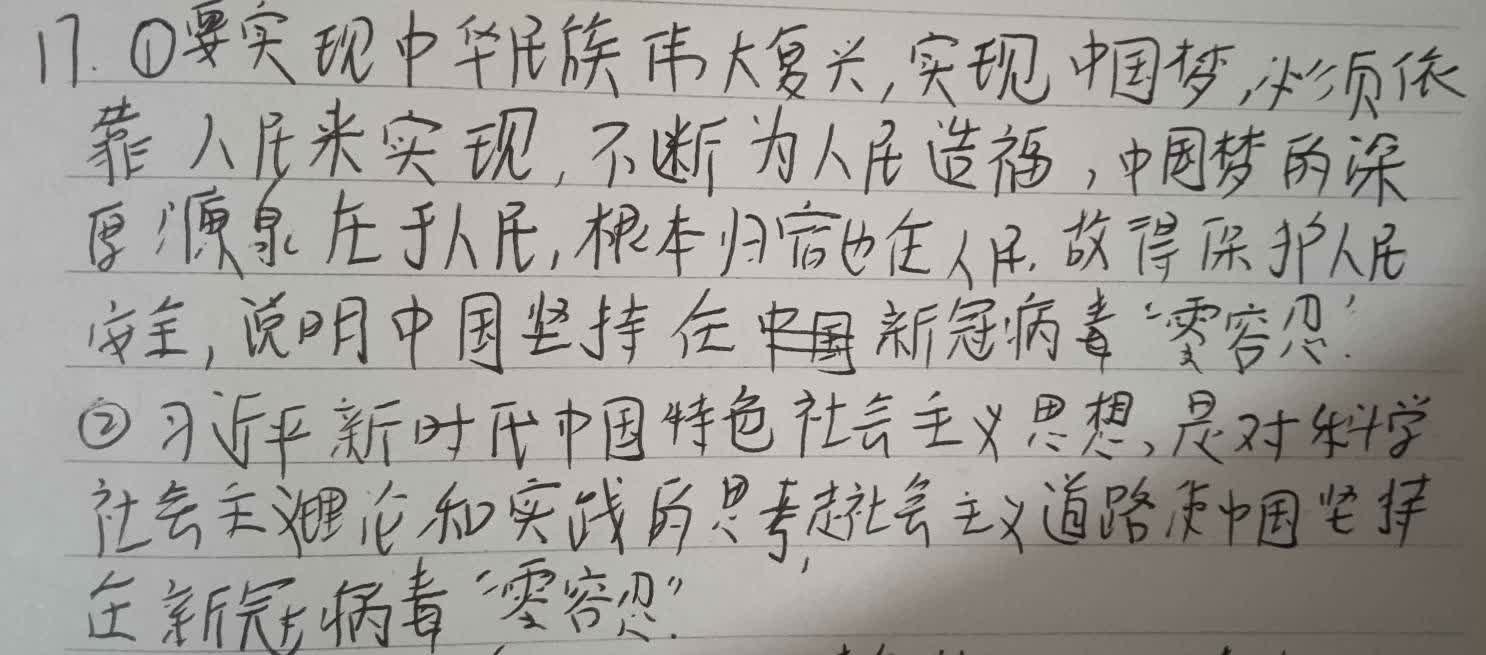 17. ①要实现中华民族伟大复兴,实现中国梦,必须依
靠人民来实现,不断为人民造福,中国梦的深
厚源泉在于人民,根本归宿也在人民.故得保护人民
安全,说明中国坚持在中国新冠病毒“零容忍”.
②习近平新时代中国特色社会主义思想,是对科学
社会主义理论和实践的思考,走社会主义道路使中国坚持
在新冠病毒“零容忍”.